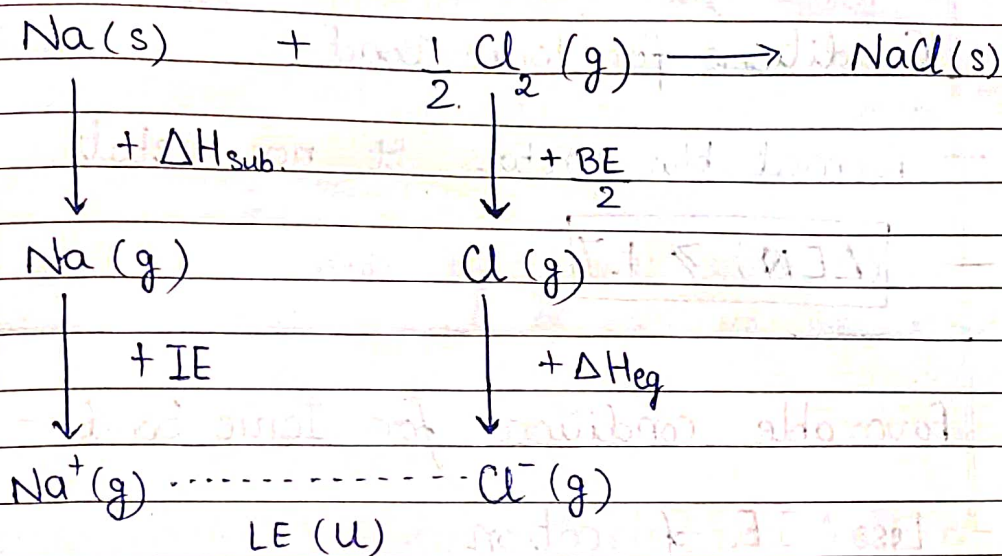 Na(s) + 1/2. Cl₂ (g) ⟶ NaCl(s)
+ ΔHsub. + BE/2
Na (g) Cl (g)
+ IE + ΔHeg
Na⁺(g) ------------- Cl⁻(g)
LE (U)